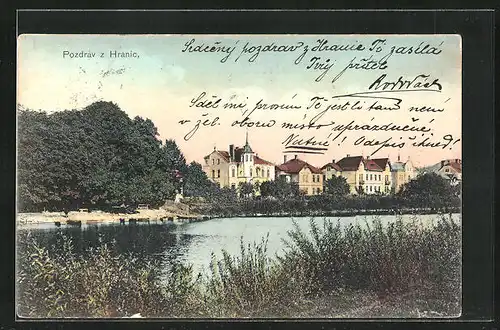 Pozdrav z Hranic,
Srdečný pozdrav z Hranic Ti zasílá
Tvůj přítel
Sděl mi, prosím Tě jestli tam není
v žel. oboru místo uprázdněné.
Nutné! Odepiš ihned!